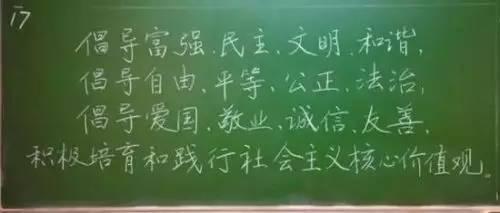 17
倡导富强、民主、文明、和谐,
倡导自由、平等、公正、法治,
倡导爱国、敬业、诚信、友善,
积极培育和践行社会主义核心价值观